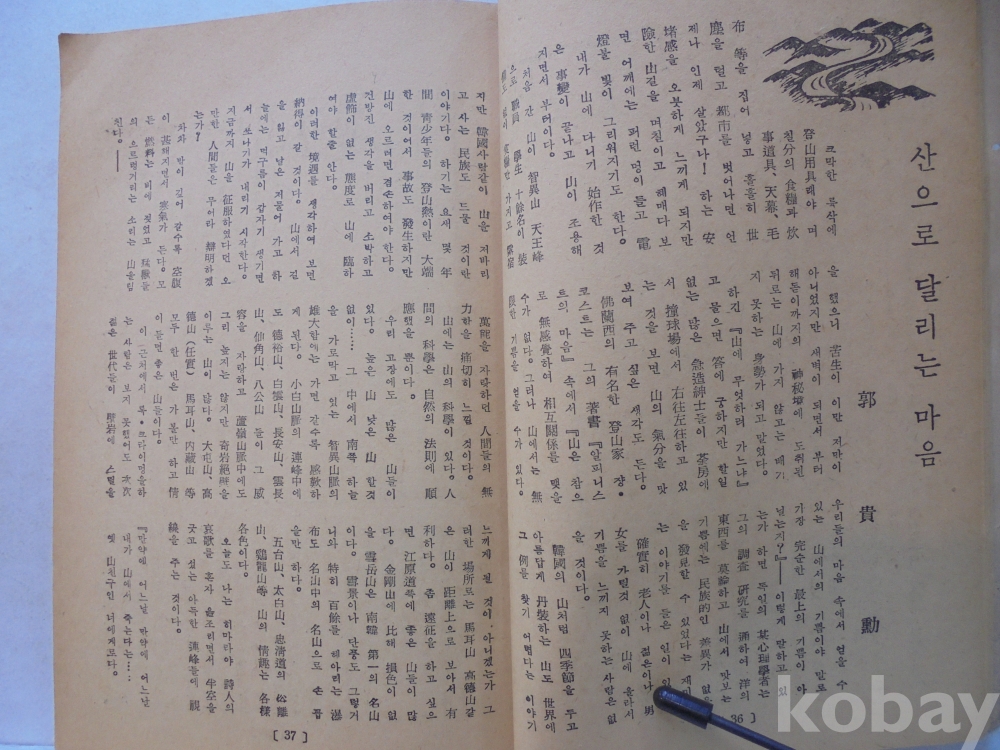 산으로 달리는 마음
郭 貴 勳
크막한 룩삭에
登山用具래야 며
칠분의 食糧과 炊
事道具、天幕、毛
布 等을 집어 넣고 흘흘히 世
塵을 털고 都市를 벗어나면 언
제나 인제 살았구나! 하는 安
堵感을 오붓하게 느끼게 되지만
險한 山길을 며칠이고 해매다보
면 어깨에는 퍼런 멍이 들고 電
燈불 빛이 그리워지기도 한다.
내가 山에 다니기 始作한 것
은 事變이 끝나고 山이 조용해
지면서 부터이다.
처음 간 山이 智異山 天王峰
으로 職員 學生 十餘名이 裝
가지고 露宿
을 했으니 苦生이 이만 저만이
아니었지만 새벽이 되면서 부터
해돋이까지의 神秘境에 도취된
뒤로는 山에 가지 않고는 배기
지 못하는 身勢가 되고 말았다.
하긴 『山에 무엇하러 가느냐』
고 물으면 答에 궁하지만 할일
없는 많은 急造紳士들이 茶房에
서 撞球場에서 右往左往하고 있
는 것을 보면 山의 氣分을 맛
보여 주고 싶은 생각도 든다.
佛蘭西의 有名한 登山家 쟝·
코스트는 그의 著書『알피니스
트의 마음』 속에서 『山은 참으
로 無感覺하여 相互關係를 맺을
수가 없다. 그러나 山에서는 無
限한 기쁨을 얻을 수가 있다.
우리들의 마음 속에서 얻을 수
있는 山에서의 기쁨이야 말로
가장 완순한 最上의 기쁨이 아
닐는지?』── 이렇게 말하고 있
는가 하면 독일의 某心理學者는
그의 調査 硏究를 通하여 洋의
東西를 莫論하고 山에서 맛보는
기쁨에는 民族的인 差異가 없음
을 發見할 수 있었다는
는 이야기를 들은 일이 있
確實히 老人이나 젊은이나 男
女를 가릴것 없이 山에 올라서
기쁨을 느끼지 못하는 사람은 없
을 것이다.
韓國의 山처럼 四季節을 두고
아름답게 丹裝하는 山도 世界에
그 例를 찾기 어렵다는 이야기
36 〕
지만 韓國사람같이 山을 저바리
고 사는 民族도 드물 것이란
이야기다. 하기는 요새 몇 年
間 靑少年들의 登山熱이란 大端
한 것이어서 事故도 發生하지만
山에 오르려면 겸손하여야 한다.
건방진 생각을 버리고 소박하고
虛飾이 없는 態度로 山에 臨하
여야 할줄 안다.
이러한 境遇를 생각하여 보면
納得이 갈 것이다. 山에서 길
을 잃고 날은 저물어 가고 하
늘에는 먹구름이 갑자기 생기면
서 쏘나기가 내리기 시작한다.
지금까지 山을 征服하였다던 오
만한 人間들은 무어라 辯明하겠
는가?
차차 밤이 깊어 갈수록 空腹
이 甚해지면서 寒氣가 든다. 모
든 燃料는 비에 젖었고 猛獸들
의 으르렁거리는 소리는 山울림
친다.──
萬能을 자랑하던 人間들의 無
力함을 痛切히 느낄 것이다.
山에는 山의 科學이 있다. 人
間의 科學은 自然의 法則에 順
應했을 뿐이다.
우리 고장에도 많은 山들이
있다. 높은 山 낮은 山 할것
없이…… 그 中에서 南쪽 하늘
을 가로막고 있는 智異山脈의
雄大함에는 가면 갈수록 感歎하
게 된다. 小白山脈의 連峰中에
도 德裕山、白雲山、長安山、雲長
山、伽角山、八公山 들이 그 威
容을 자랑하고 蘆嶺山脈中에도
그리 높지는 않지만 奇岩絕壁을
이루는 山이 많다. 大屯山、高
德山(任實)馬耳山、內藏山 等
모두 한 번은 가 볼만 하고 情
이들면 좋은 山들이다.
이 근처에서 록·크라이밍을하
는 사람은 보지 못했어도 次次
젊은 世代들이 岩에 스릴을
느끼게 될 것이 아니겠는가 그
러한 場所로는 馬耳山 高德山같
은 山이 距離上으로 보아서 有
利하다. 좀 遠征을 하고 싶으
면 江原道쪽에 좋은 山들이 많
다. 金剛山에 比해 損色이 없
을 雪岳山은 南韓 第一의 名山
이다. 雪景이나 단풍도 그렇거
니와 特히 百餘를 헤아리는 瀑
布도 名山中의 名山으로 손 꼽
을만 하다.
五台山、太白山、忠淸道의 俗離
山、鷄龍山等 山의 情趣는 各樣
各色이다.
오늘도 나는 히마라야 詩人의
哀歌를 혼자 읊조리면서 牛室을
긋고 싶는 아득한 連峰들에 視
線을 주는 것이다.
『만약에 어느날 만약에 어느날
내가 山에서 죽는다면……
옛 山친구인 너에게로다.
〔 37 〕
kobay